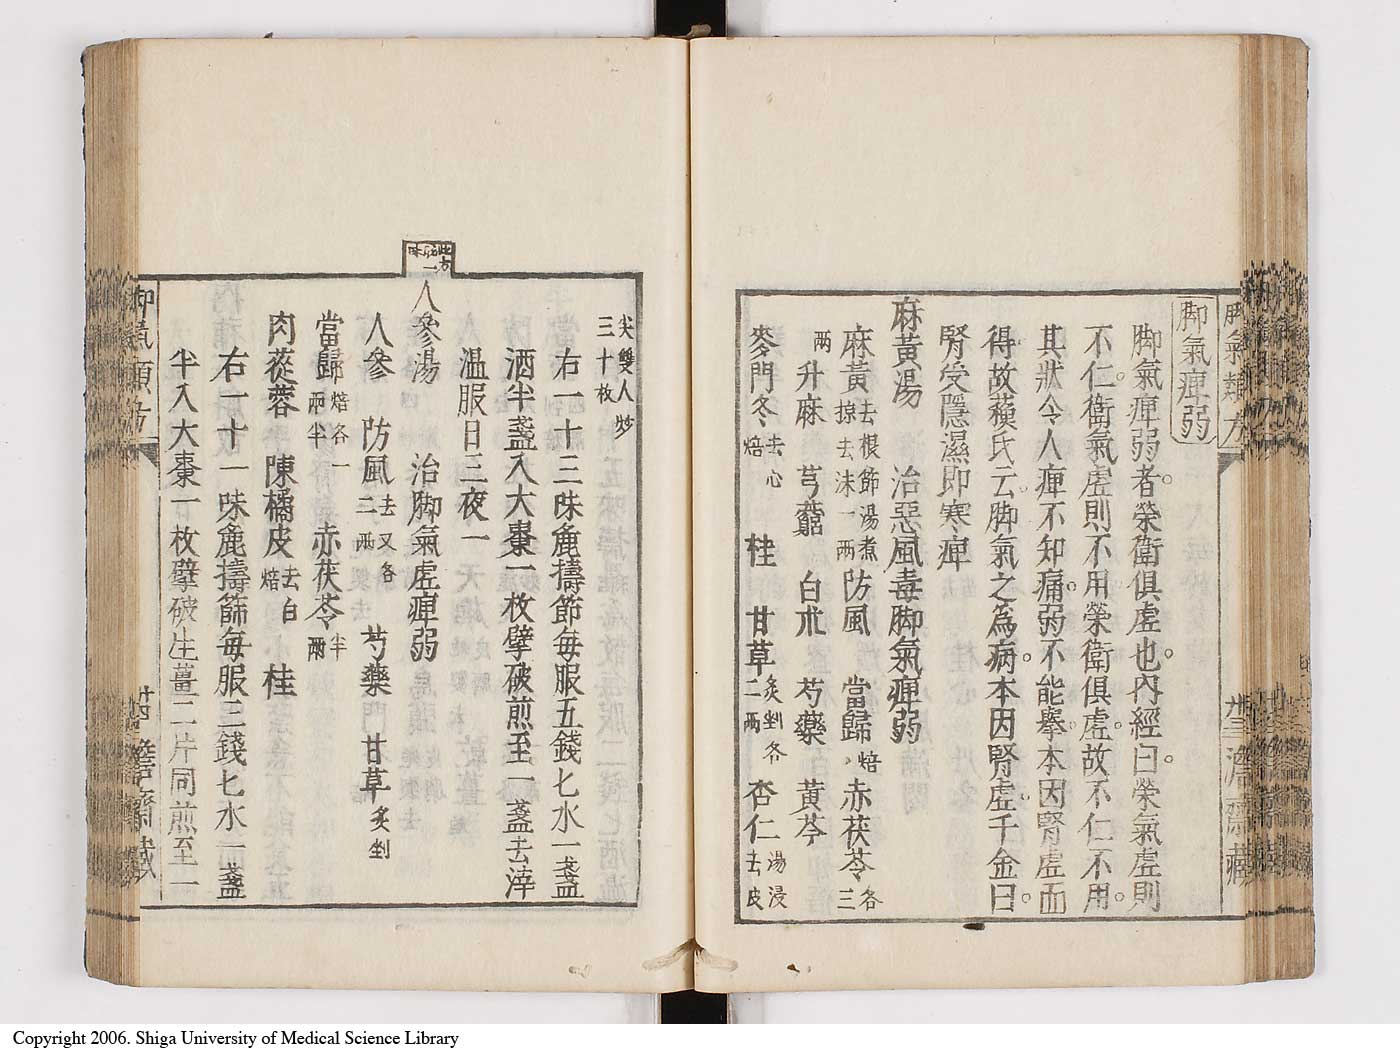 脚氣類方
脚氣痺弱
脚氣痺弱者榮衛俱虛也內經曰榮氣虛則
不仁衛氣虛則不用榮衛俱虛故不仁不用
其狀令人痺不知痛弱不能擧本因腎虛而
得故蘓氏云脚氣之爲病本因腎虛千金曰
腎受隱濕即寒痺
麻黃湯　治惡風毒脚氣痺弱
麻黃去根節湯煮掠去沫一兩防風　當歸焙赤茯苓各三
兩升麻　芎藭　白朮　芍藥　黃芩
麥門冬去心焙　桂　甘草炙剉各二兩　杏仁湯浸去皮
澹齋藏
尖雙人炒三十枚
右一十三味麁擣篩每服五錢匕水一盞
酒半盞入大棗一枚擘破煎至一盞去滓
温服日三夜一
此方
人參湯　治脚氣虛痺弱
人參　防風去叉各二兩　芍藥　門　甘草炙剉
當歸焙各一兩半　赤茯苓半兩
肉蓯蓉　陳橘皮去白焙　桂
右一十一味麁擣篩每服三錢匕水一盞
半入大棗一枚擘破生薑二片同煎至一
脚氣類方
廿四
齋藏
Copyright 2006. Shiga University of Medical Science Library